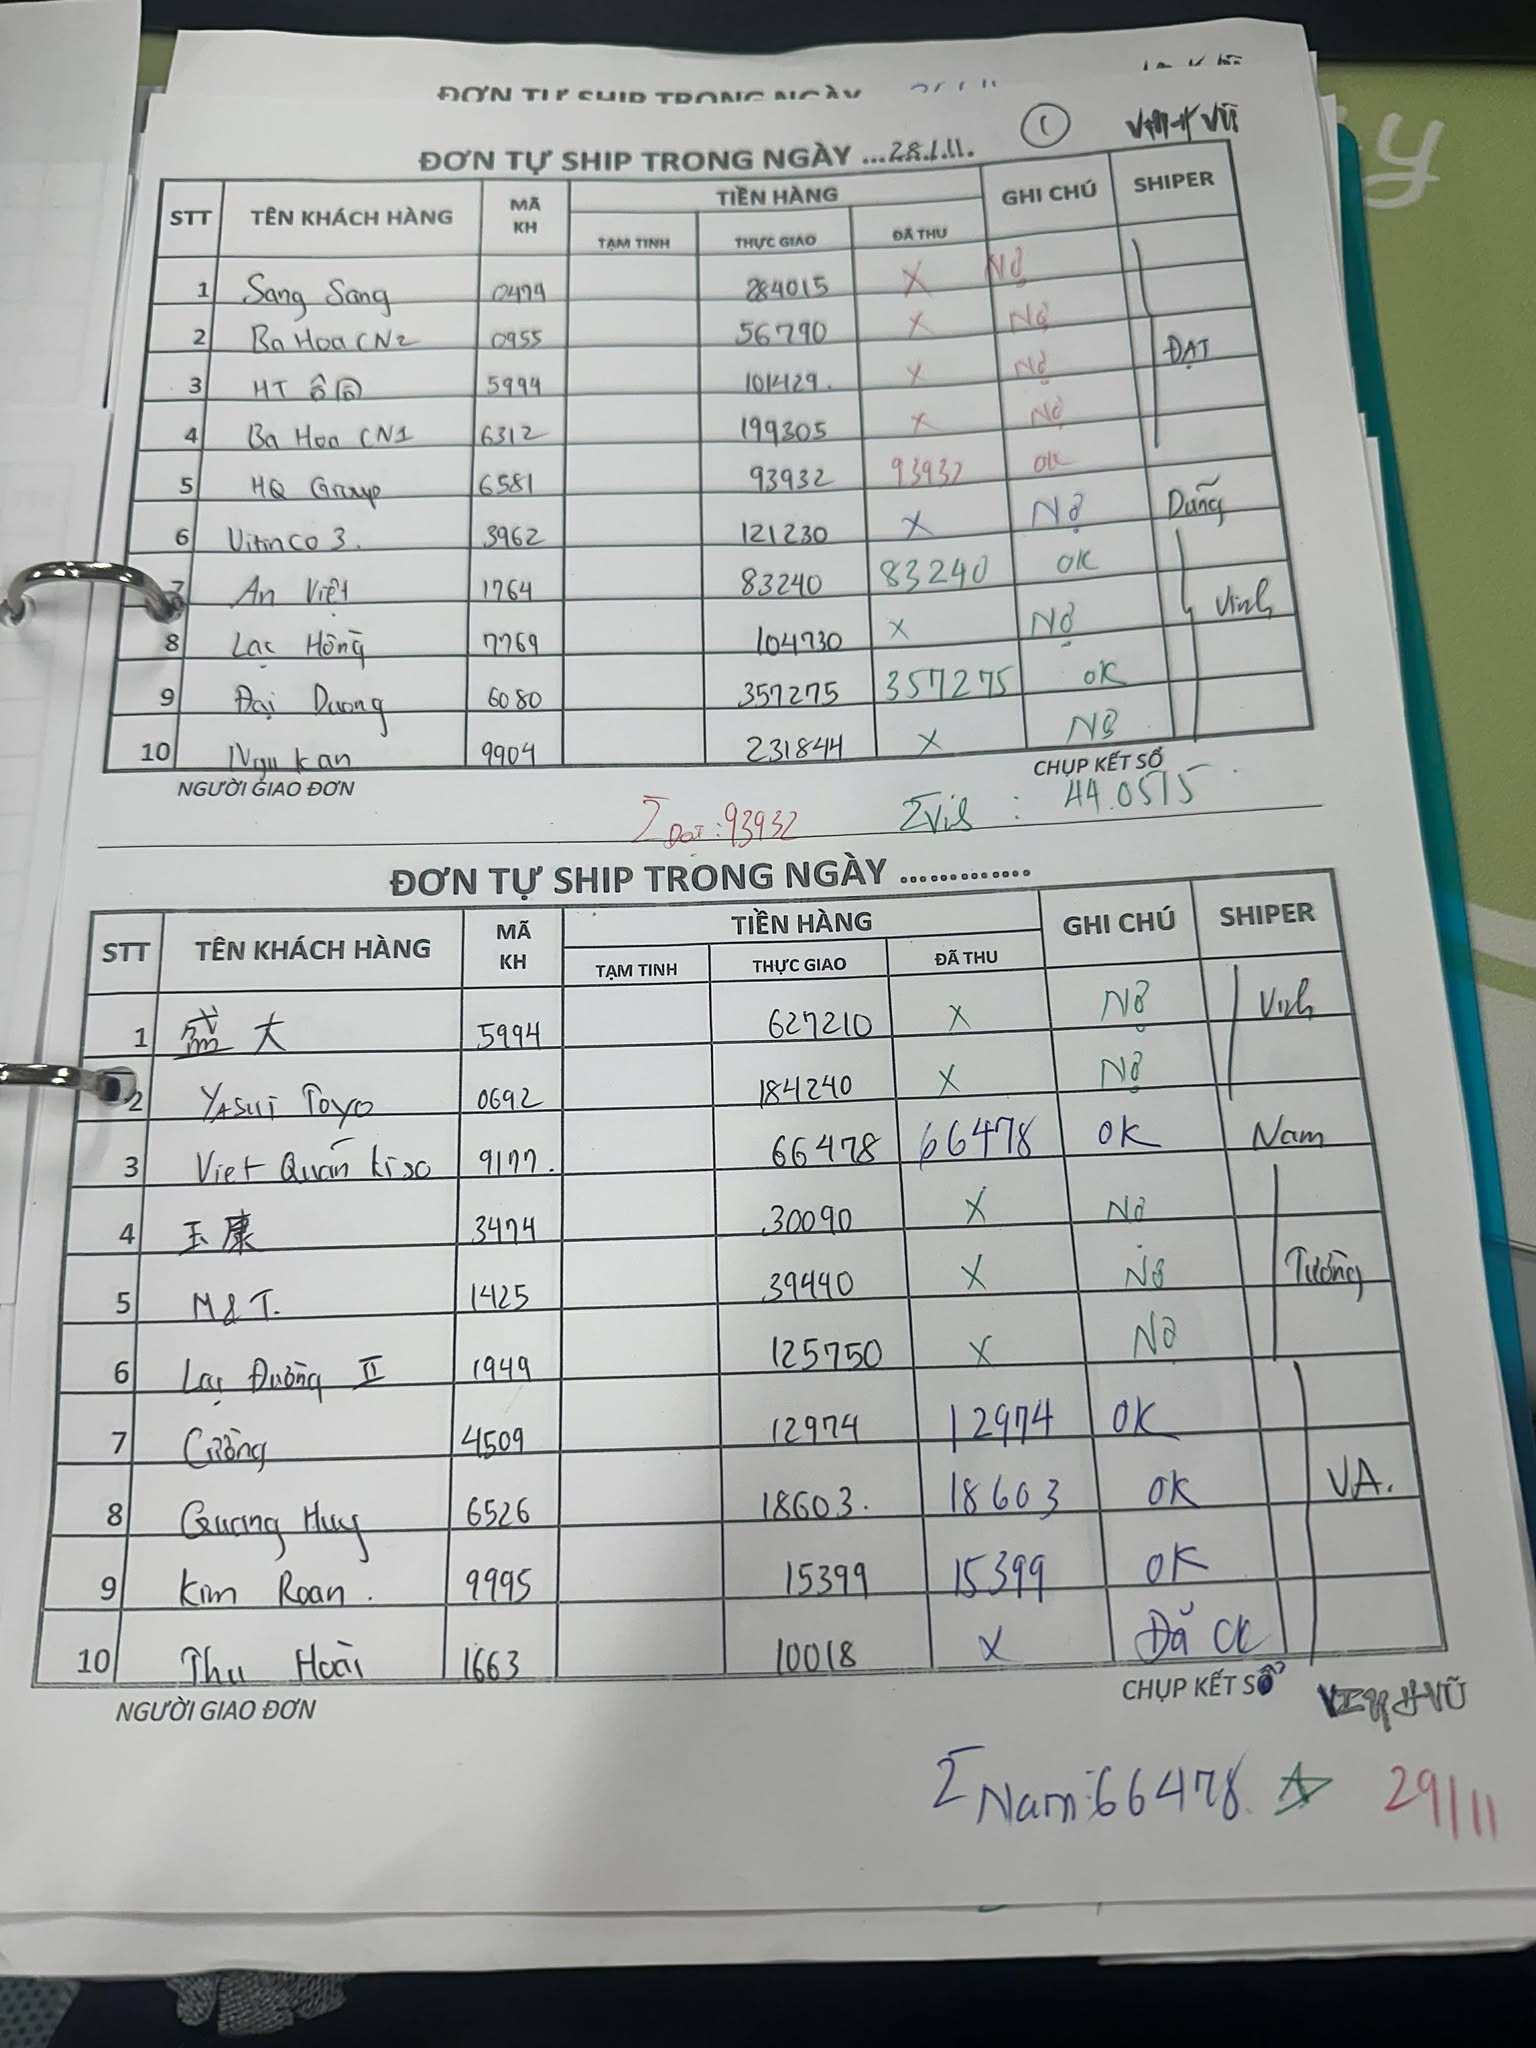 ĐƠN TỰ SHIP TRONG NGÀY
ĐƠN TỰ SHIP TRONG NGÀY ...28/11.
1
STT TÊN KHÁCH HÀNG MÃ KH TIỀN HÀNG GHI CHÚ SHIPER
TẠM TINH THỰC GIAO ĐÃ THU
1 Sang Sang 0474 284015 X Nợ
2 Ba Hoa CN2 0955 56790 X Nợ ĐẠT
3 HT 5994 101429. X Nợ
4 Ba Hoa CN1 6312 199305 X Nợ
5 HQ Group 6581 93932 93932 OK
6 Vitinco 3. 3962 121230 X Nợ Dũng
7 An Việt 1764 83240 83240 OK
8 Lạc Hồng 7769 104730 X Nợ Vinh
9 Đại Dương 6080 357275 357275 OK
10 Ngu Kan 9904 231844 X Nợ
NGƯỜI GIAO ĐƠN CHỤP KẾT SỔ
Σ Đạt: 93932 Σ Vih : 44.0515
ĐƠN TỰ SHIP TRONG NGÀY .............
STT TÊN KHÁCH HÀNG MÃ KH TIỀN HÀNG GHI CHÚ SHIPER
TẠM TINH THỰC GIAO ĐÃ THU
1 盛大 5994 627210 X Nợ Vinh
2 YASUI Toyo 0692 184240 X Nợ
3 Viet Quán Kiso 9177. 66478 66478 OK Nam
4 玉康 3474 30090 X Nợ
5 M&T. 1425 39440 X Nợ Tường
6 Lạc Đường II 1949 125750 X Nợ
7 Cường 4509 12974 12974 OK
8 Quang Huy 6526 18603. 18603 OK VA.
9 Kim Roan. 9995 15399 15399 OK
10 Thu Hoài 1663 10018 X Đã CK
NGƯỜI GIAO ĐƠN CHỤP KẾT SỔ
Σ Nam: 66478. 29/11